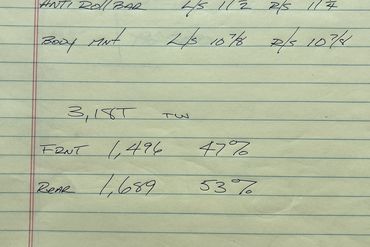 ANTI ROLL BAR L/S 11/2 R/S 11/4
BODY MNT L/S 10 7/8 R/S 10 7/8
3,185 TW
FRNT 1,496 47%
REAR 1,689 53%